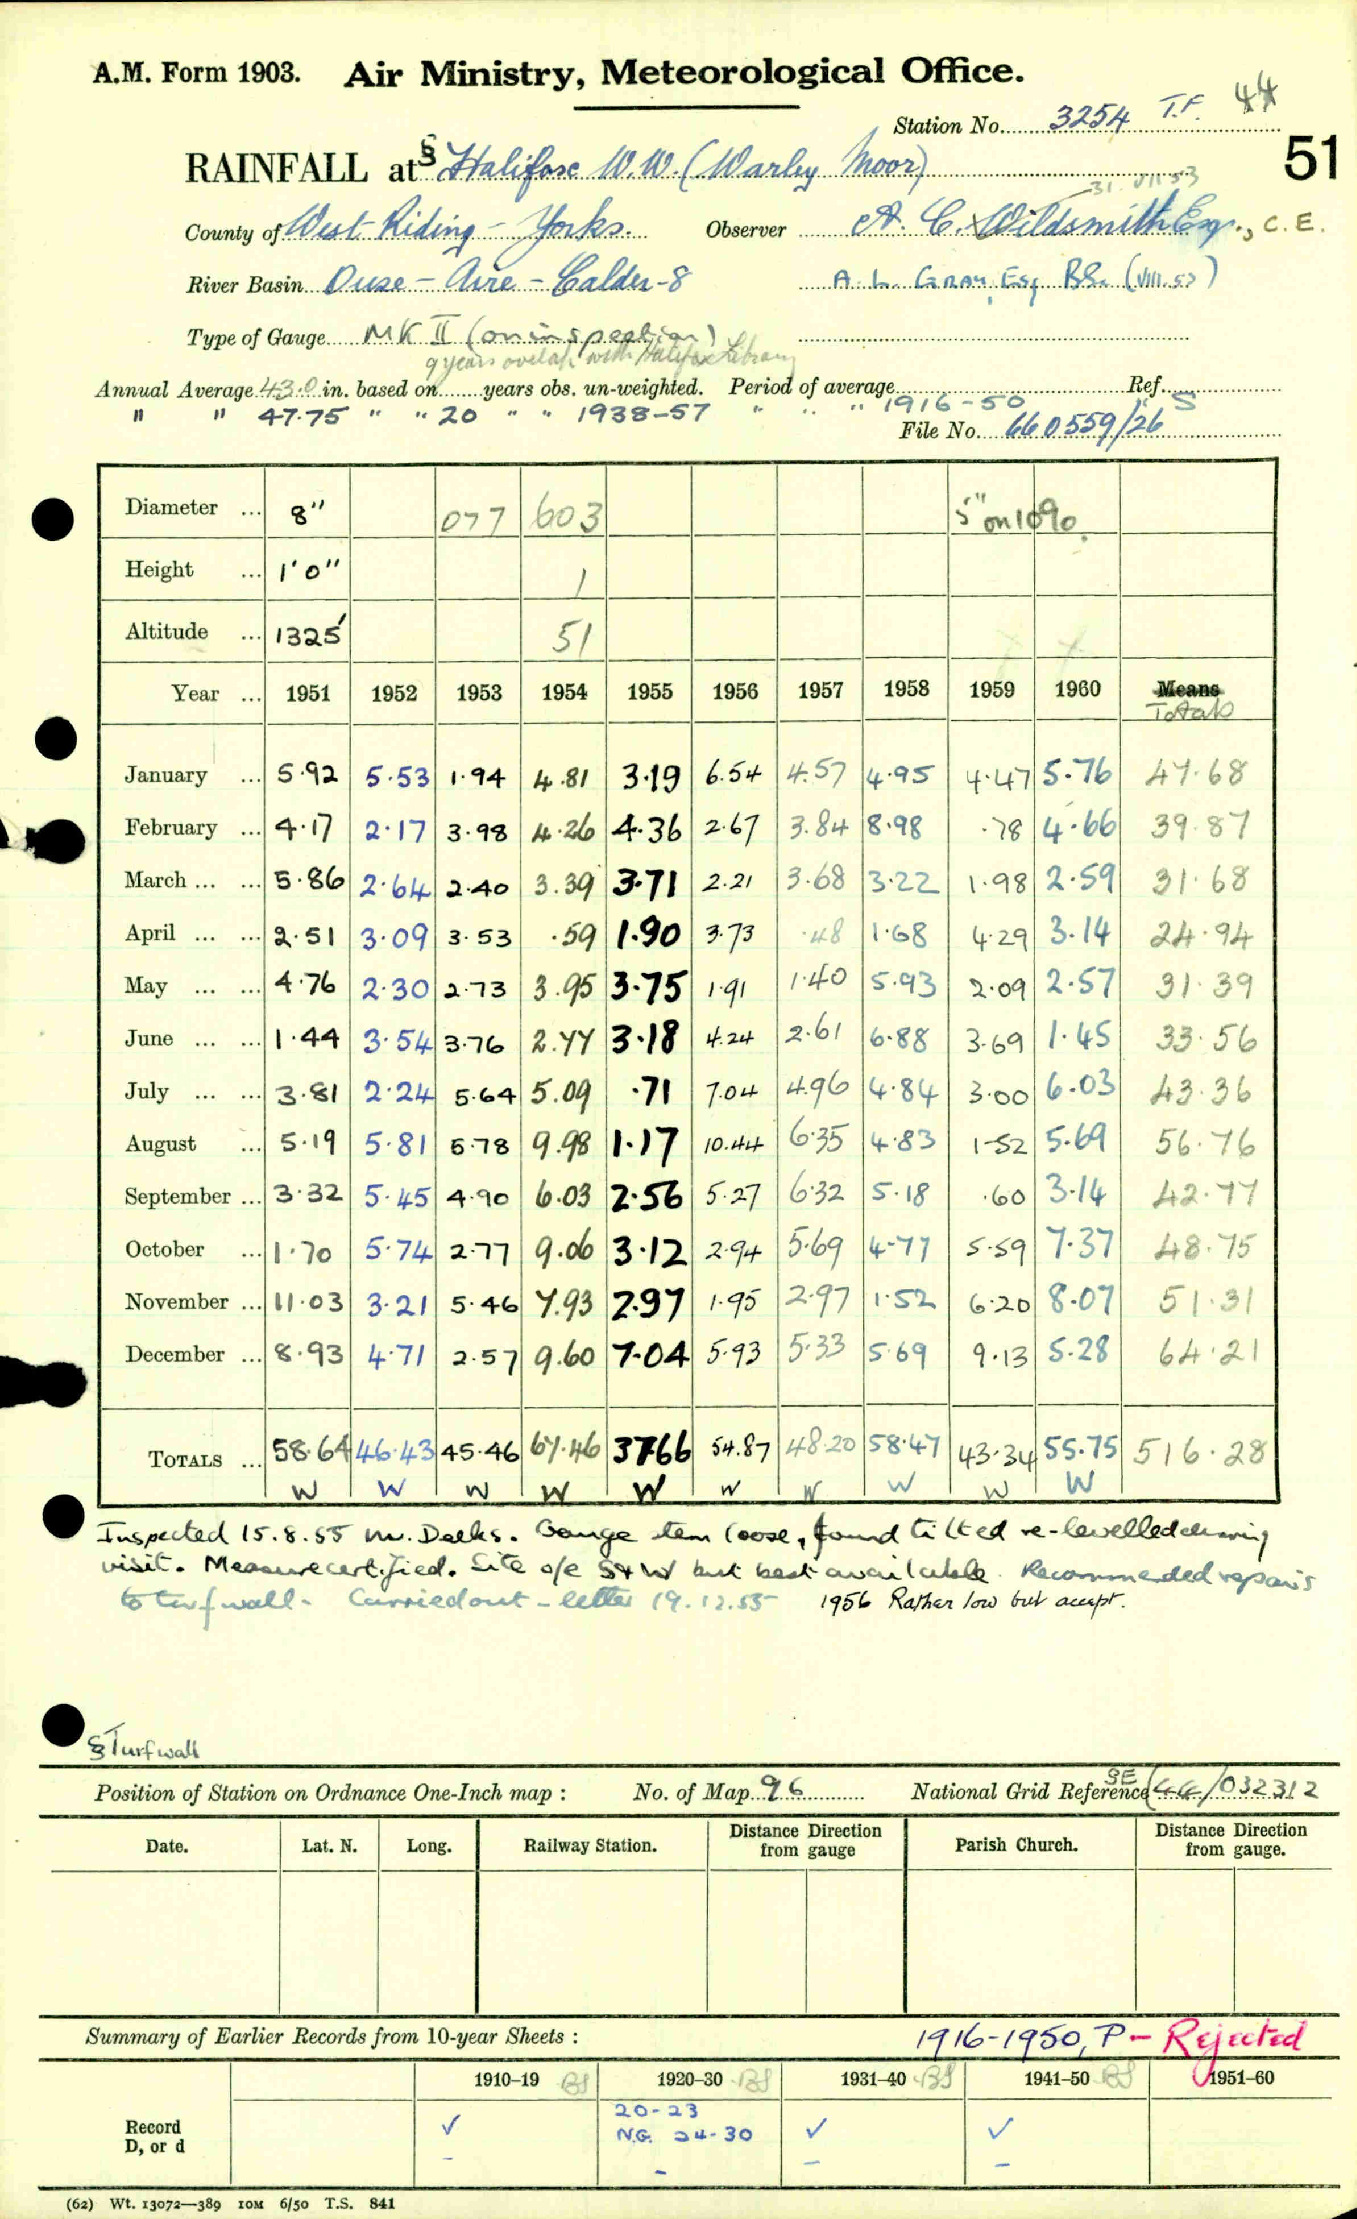 A.M. Form 1903. Air Ministry, Meteorological Office.
Station No. 3254 T.F. 44
51
RAINFALL at § Halifax W.W. (Warley Moor)
31. VII 53
County of West Riding - Yorks. Observer A. C. Wildsmith Esq., C.E.
River Basin Ouse - Aire - Calder-8 A. L. GRAY, Esq BSc. (VIII.53)
Type of Gauge MK II (on inspection)
9 years overlap with Halifax Library
Annual Average 43.0 in. based on years obs. un-weighted. Period of average Ref.
" " 47.75 " " 20 " " 1938-57 " " " 1916-50 " S
File No. 660559/26
Diameter ... 8" 077 603 5" on 10%.
Height ... 1'0" 1
Altitude ... 1325' 51
Year ... 1951 1952 1953 1954 1955 1956 1957 1958 1959 1960 Means
Totals
January ... 5.92 5.53 1.94 4.81 3.19 6.54 4.57 4.95 4.47 5.76 47.68
February ... 4.17 2.17 3.98 4.26 4.36 2.67 3.84 8.98 .78 4.66 39.87
March ... ... 5.86 2.64 2.40 3.39 3.71 2.21 3.68 3.22 1.98 2.59 31.68
April ... ... 2.51 3.09 3.53 .59 1.90 3.73 .48 1.68 4.29 3.14 24.94
May ... ... 4.76 2.30 2.73 3.95 3.75 1.91 1.40 5.93 2.09 2.57 31.39
June ... ... 1.44 3.54 3.76 2.77 3.18 4.24 2.61 6.88 3.69 1.45 33.56
July ... ... 3.81 2.24 5.64 5.09 .71 7.04 4.96 4.84 3.00 6.03 43.36
August ... 5.19 5.81 5.78 9.98 1.17 10.44 6.35 4.83 1.52 5.69 56.76
September ... 3.32 5.45 4.90 6.03 2.56 5.27 6.32 5.18 .60 3.14 42.77
October ... 1.70 5.74 2.77 9.06 3.12 2.94 5.69 4.77 5.59 7.37 48.75
November ... 11.03 3.21 5.46 7.93 2.97 1.95 2.97 1.52 6.20 8.07 51.31
December ... 8.93 4.71 2.57 9.60 7.04 5.93 5.33 5.69 9.13 5.28 64.21
TOTALS ... 58.64 46.43 45.46 67.46 37.66 54.87 48.20 58.47 43.34 55.75 516.28
W W W W W W W W W W
Inspected 15.8.55 Mr. Deeks. Gauge stem loose, found tilted re-levelled during
visit. Measure certified. Site o/e S+W but best available. Recommended repairs
to turf wall. Carried out - letter 19.12.55 1956 Rather low but accept.
§ Turf wall
Position of Station on Ordnance One-Inch map : No. of Map 96 National Grid Reference SE (44/032312
Date. Lat. N. Long. Railway Station. Distance Direction from gauge Parish Church. Distance Direction from gauge.
Summary of Earlier Records from 10-year Sheets : 1916-1950, P - Rejected
1910–19 BS 1920–30 BS 1931–40 BS 1941–50 BS 1951–60
Record ✓ 20-23 ✓ ✓
D, or d - N.G. 24-30 - - -
(62) Wt. 13072—389 10M 6/50 T.S. 841